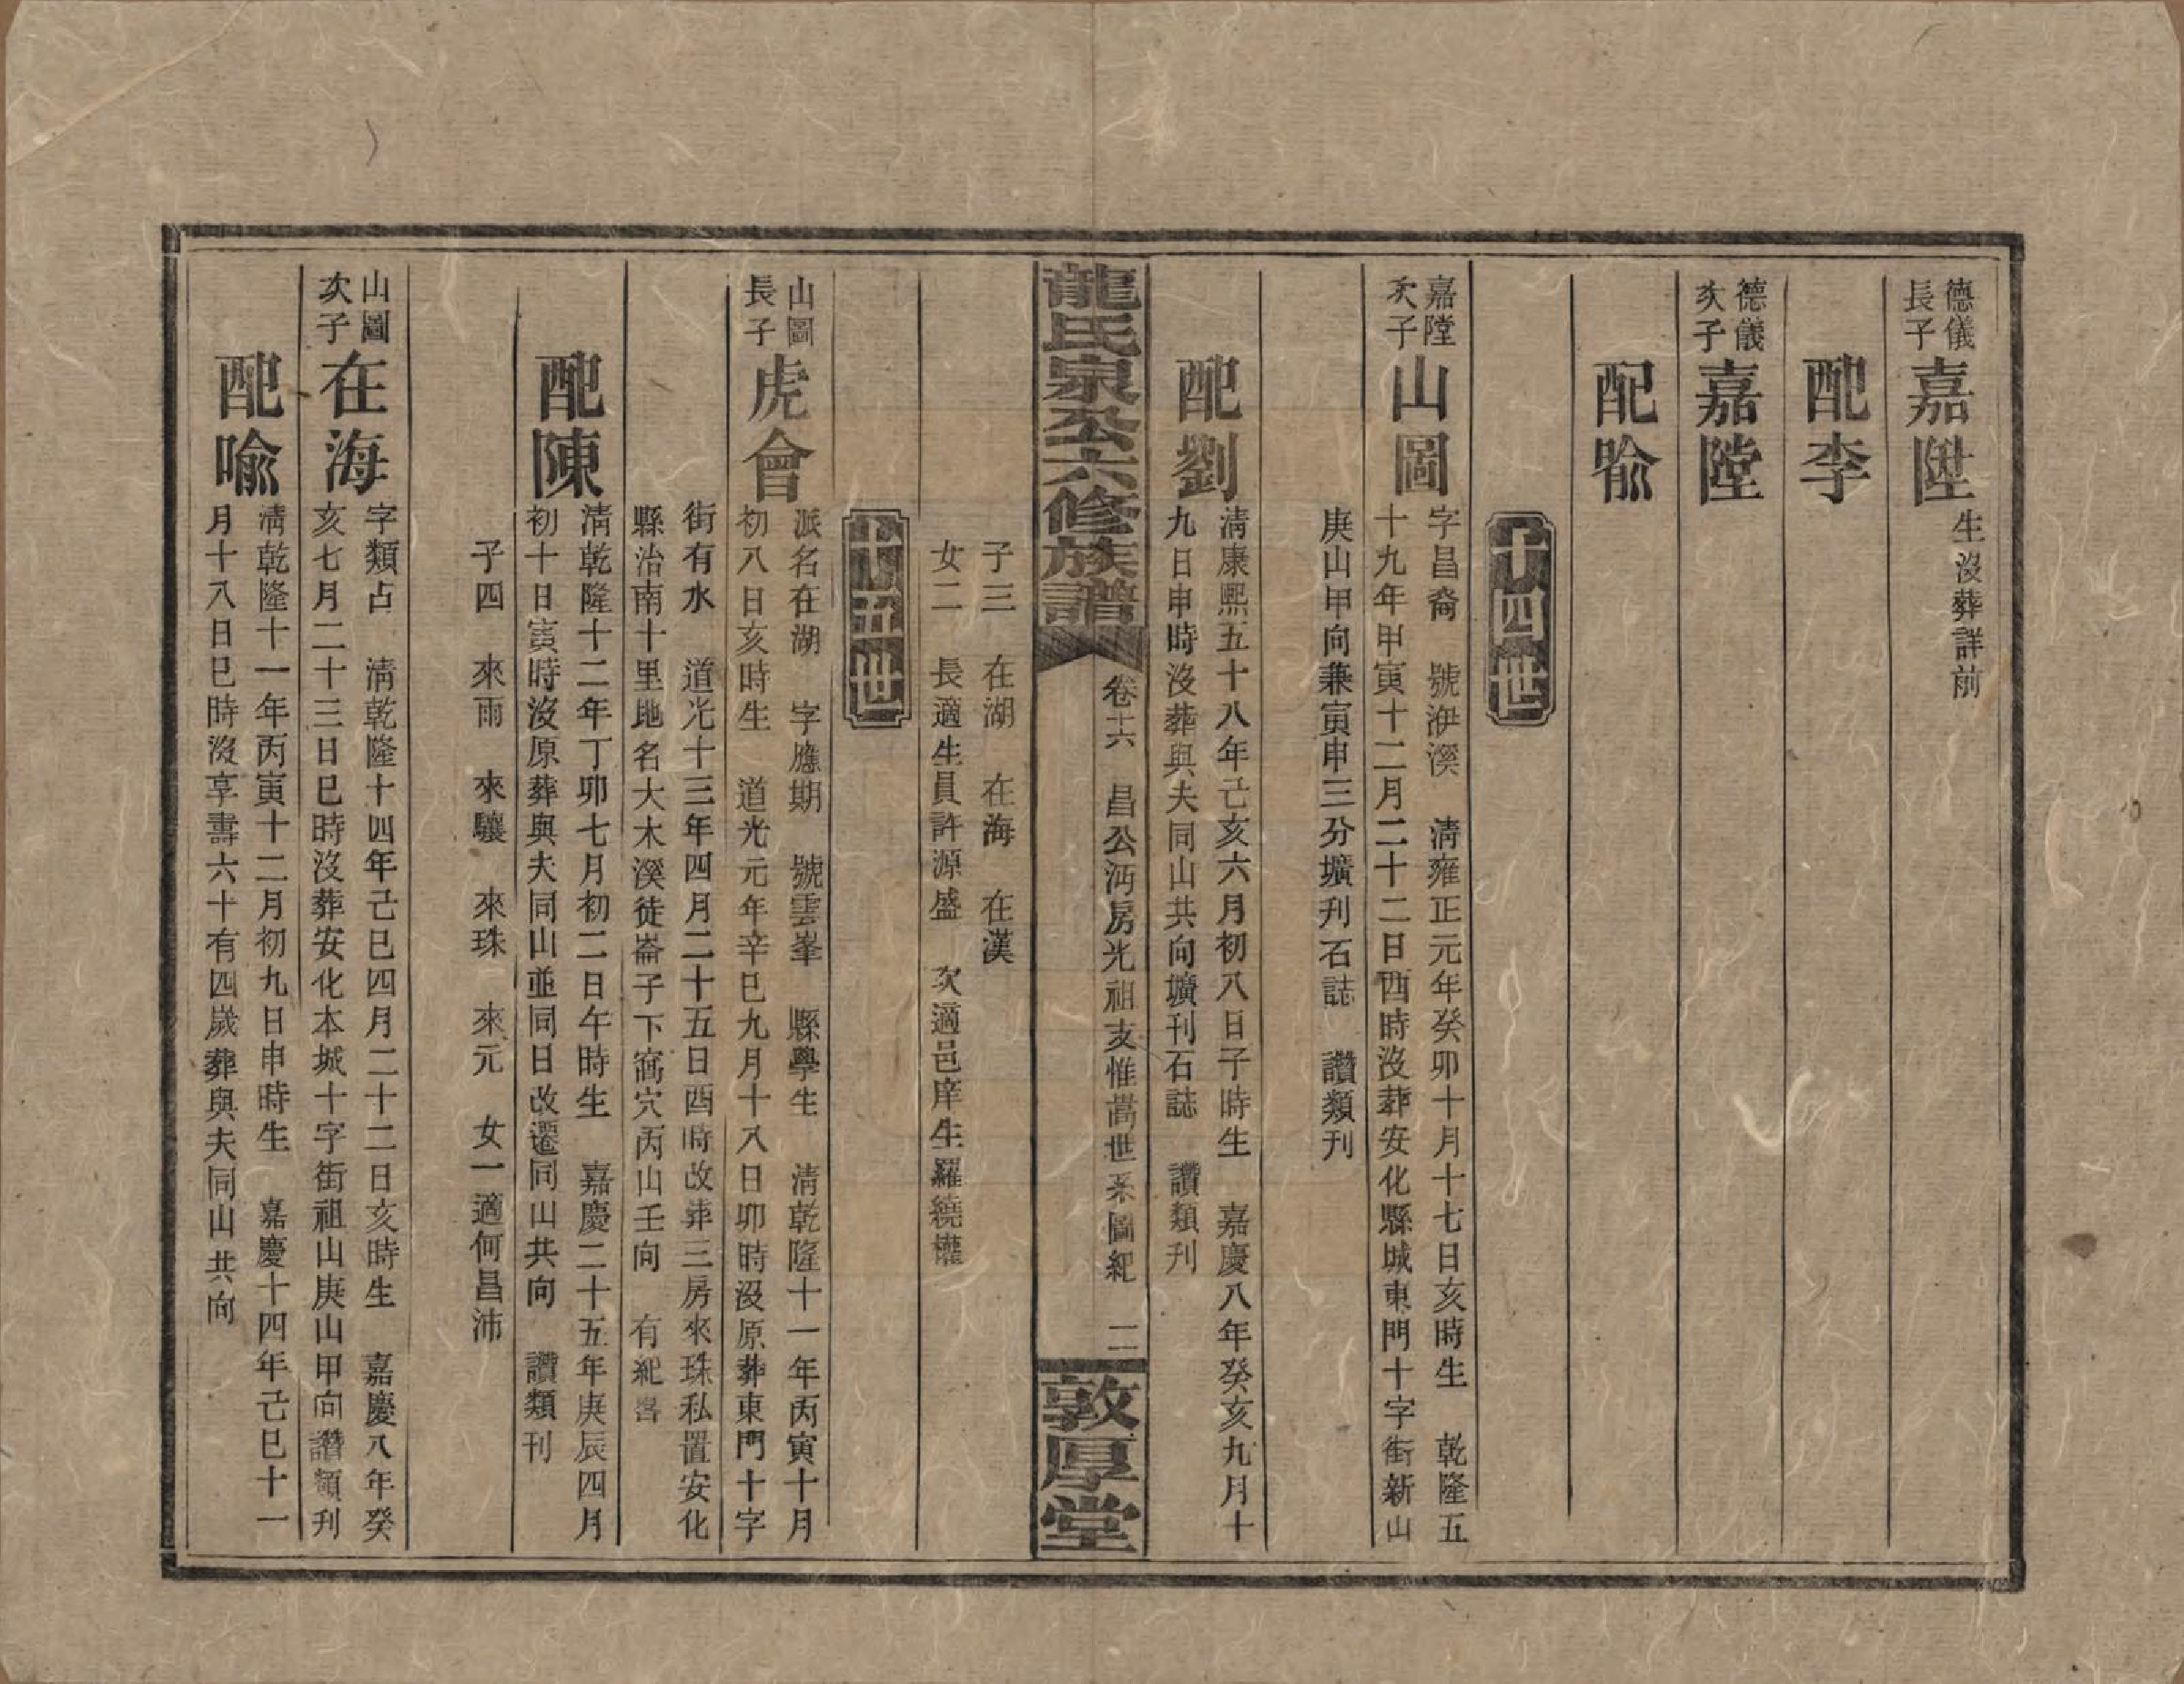 德儀
長子
嘉陞
生沒葬詳前
配李
德儀
次子
嘉隚
配喻
十四世
嘉隚
次子
山圖
字昌裔　號洢溪　清雍正元年癸卯十月十七日亥時生　乾隆五
十九年甲寅十二月二十二日酉時沒葬安化縣城東門十字街新山
庚山甲向兼寅申三分壙刋石誌　讚類刋
配劉
清康熙五十八年己亥六月初八日子時生　嘉慶八年癸亥九月十
九日申時沒葬與夫同山共向壙刋石誌　讚類刋
龍氏泉公六修族譜
卷十六　昌公沔房光祖支惟嵩世系圖紀　二
敦厚堂
子三　在湖　在海　在漢
女二　長適生員許源盛　次適邑庠生羅繞權
十五世
山圖
長子
虎會
派名在湖　字應期　號雲峯　縣學生　清乾隆十一年丙寅十月
初八日亥時生　道光元年辛巳九月十八日卯時沒原葬東門十字
街有水　道光十三年四月二十五日酉時改葬三房來珠私置安化
縣治南十里地名大木溪徒崙子下窩穴丙山壬向　有紀畧
配陳
清乾隆十二年丁卯七月初二日午時生　嘉慶二十五年庚辰四月
初十日寅時沒原葬與夫同山並同日改遷同山共向　讚類刋
子四　來雨　來驤　來珠　來元　女一適何昌沛
山圖
次子
在海
字類占　清乾隆十四年己巳四月二十二日亥時生　嘉慶八年癸
亥七月二十三日巳時沒葬安化本城十字街祖山庚山甲向讚類刋
配喻
清乾隆十一年丙寅十二月初九日申時生　嘉慶十四年己巳十一
月十八日巳時沒享壽六十有四歲葬與夫同山共向